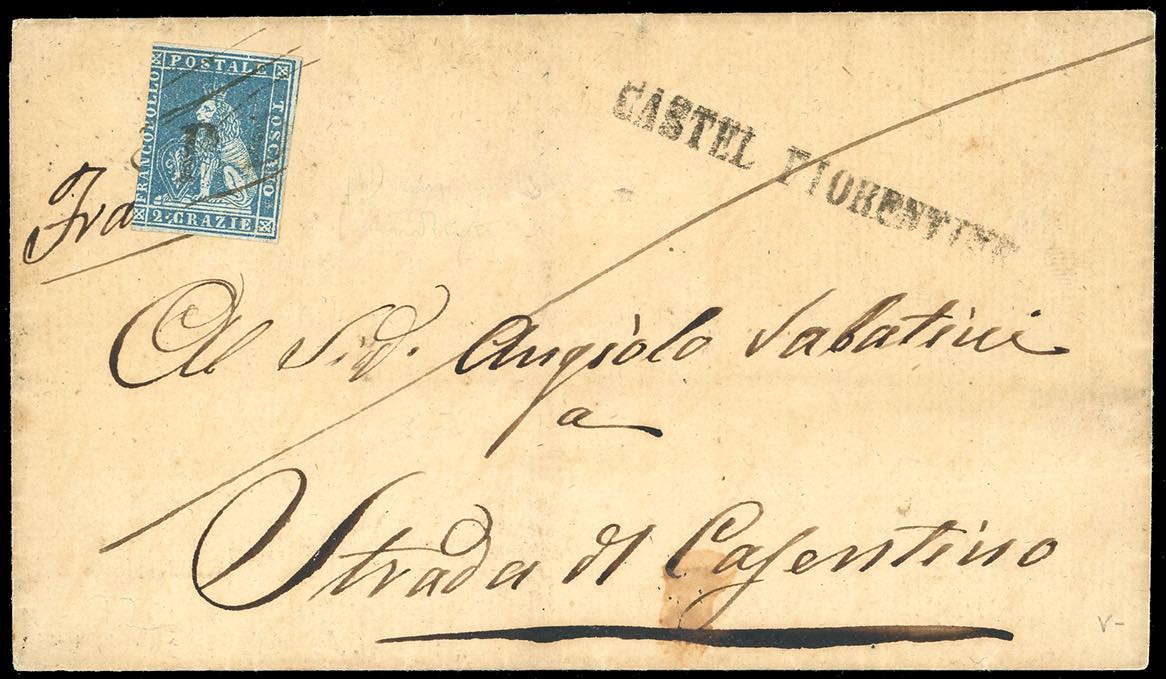 FRANCOBOLLO POSTALE TOSCANO
P
2·GRAZIE
CASTEL FIORENTINO
Fra
Al Sig. Angiolo Sabatini
a
Strada di Casentino